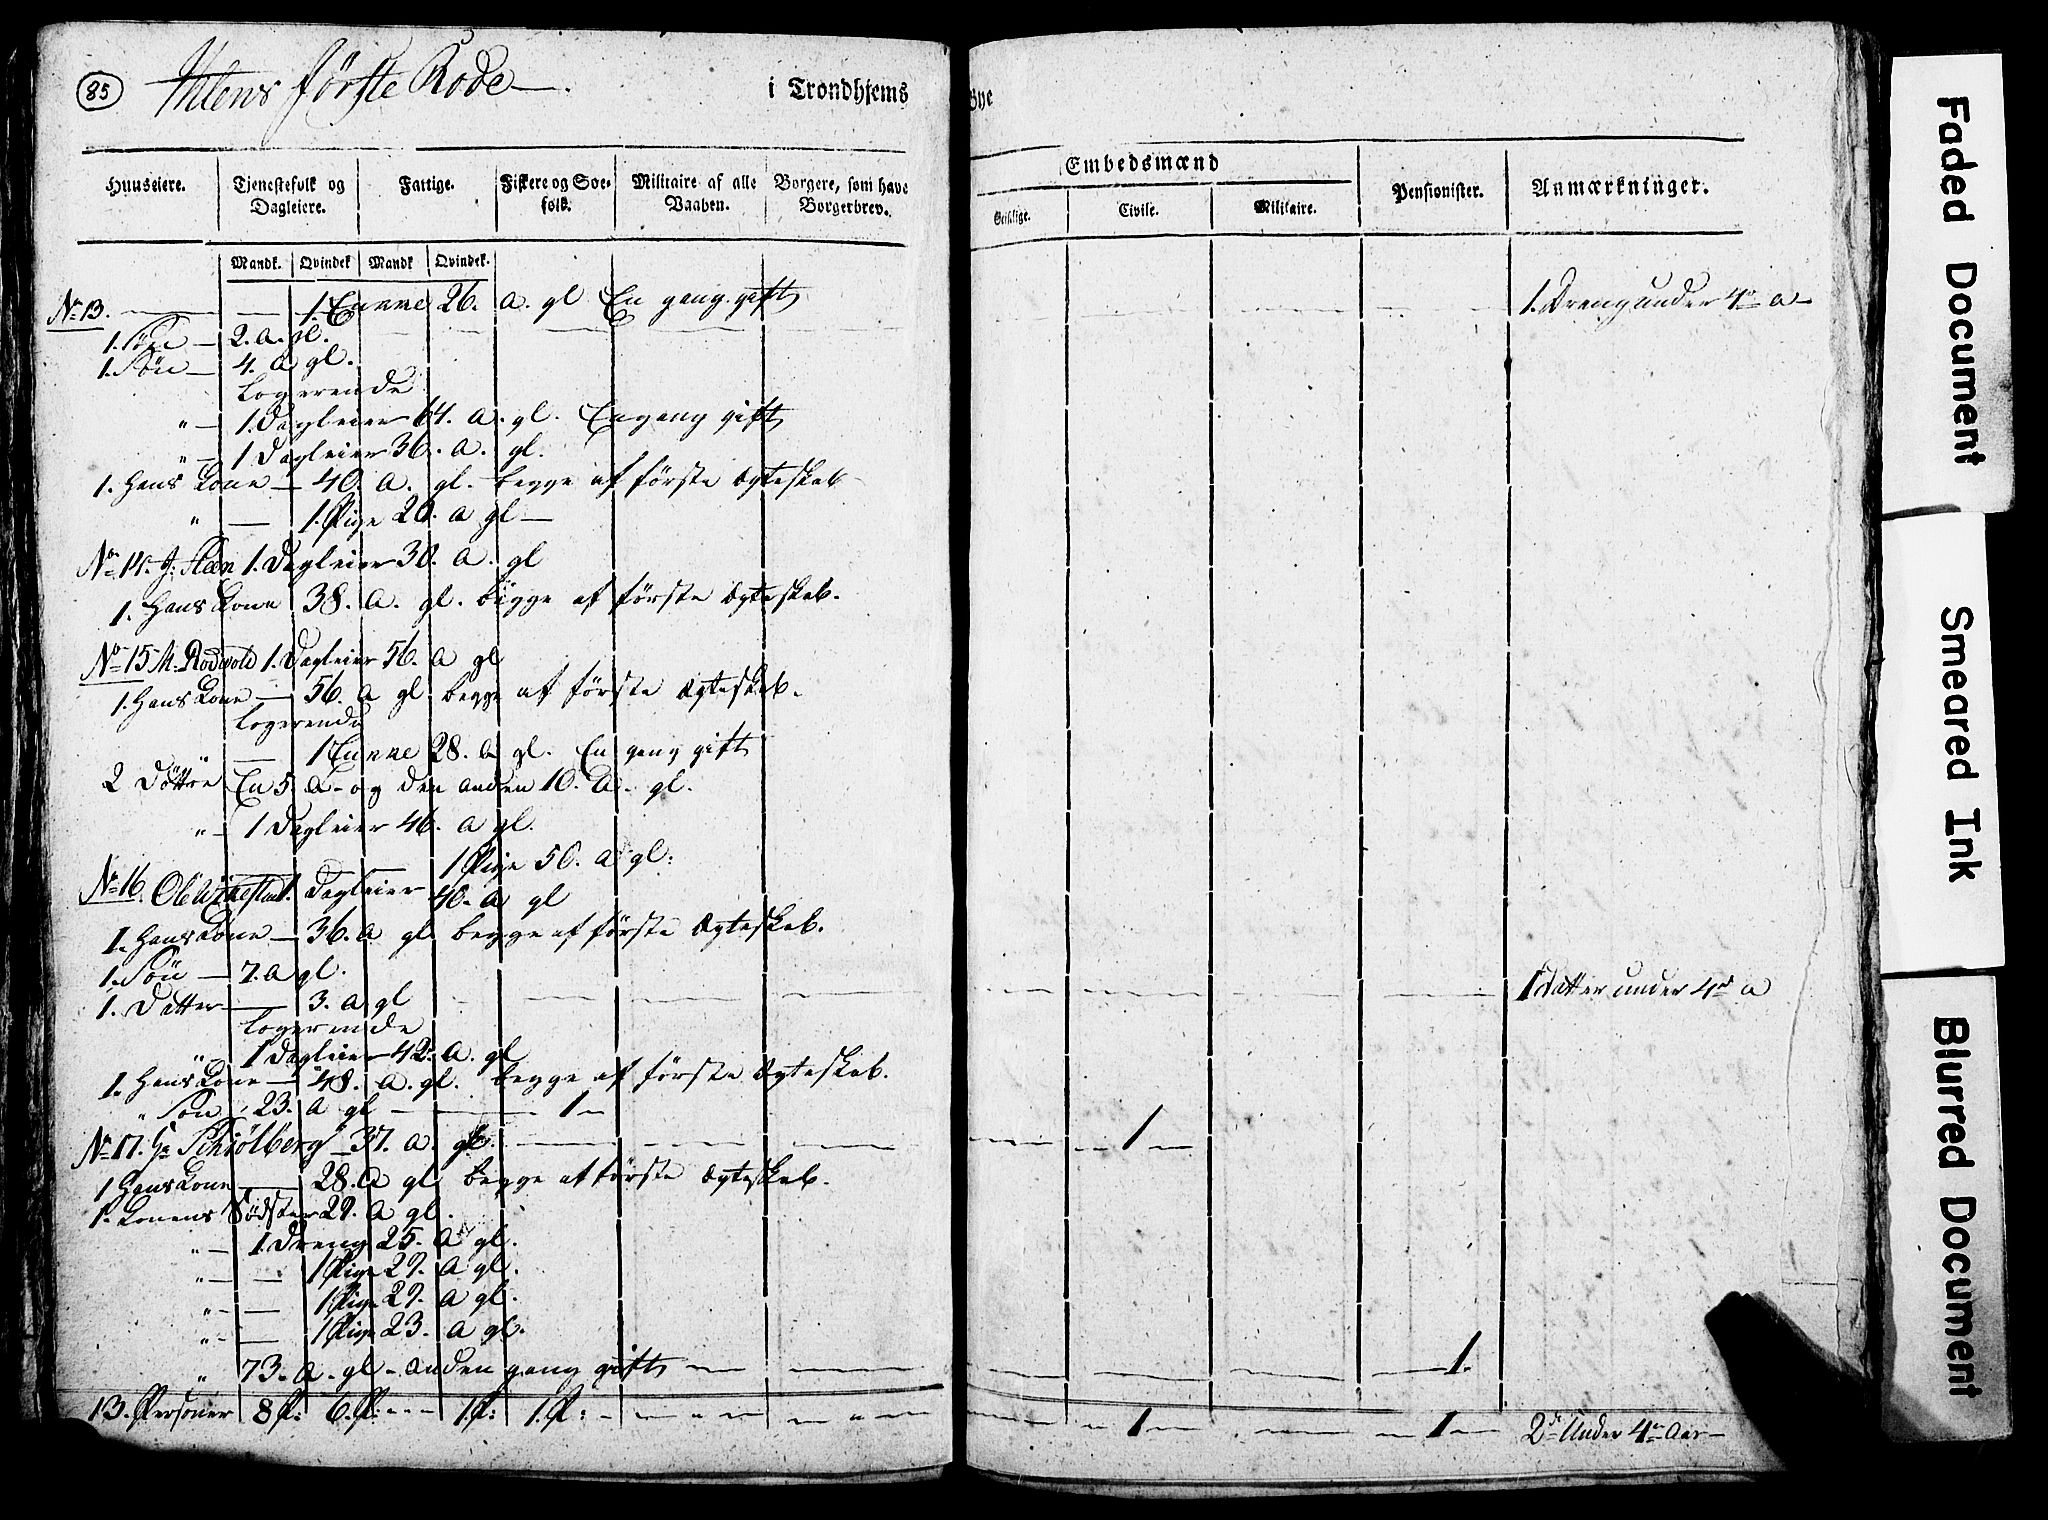 85
Ihlens første Rode
i Trondhjems
Bye
Huuseiere.
Tjenestefolk og Dagleiere.
Fattige.
Fiskere og Søefolk.
Militaire af alle Vaaben.
Borgere, som have Borgerbrev.
Embedsmænd
Geistlige.
Civile.
Militaire.
Pensionister.
Anmærkninger.
Mandk. Qvindek. Mandk Qvindek.
No 13. — — 1. Enke 26. a. gl En gang gift — 1. Dreng under 4re a
1. Søn — 2. a. gl.
1. Søn — 4. a gl.
Logerende
" — 1. Dagleier 64. a. gl. En gang gift
" — 1 Dagleier 36. a. gl.
1. Hans Kone — 40 a. gl. begge af første Ægteskab
" — 1. Pige 20. a gl —
No 14. J: Steen 1. Dagleier 30. a. gl
1. Hans Kone 38. a. gl. begge af første Ægteskab.
No 15 M. Rodvold 1. Dagleier 56. a gl
1. Hans Kone — 56. a gl. begge af første Ægteskab.
Logerende
" — 1 Enke 28. a gl. En gang gift
2 Døttre En 5 a. og den anden 10. a. gl.
" — 1 Dagleier 46. a gl.
1 Pige 50. a gl:
No 16. Ole 1. Dagleier 40. a gl
1. Hans Kone — 36. a gl begge af første Ægteskab.
1. Søn — 7. a gl.
1. Datter — 3. a gl — 1 Datter under 4re a
Logerende
" 1 Dagleier 42. a. gl
1. Hans Kone — 48. a. gl. begge af første Ægteskab.
" Søn 23. a gl — 1 —
No 17. Hr Schiølberg — 37. a. gl. — 1 —
1 Hans Kone — 28. a gl begge af første Ægteskab.
1. Konens Södster 29. a gl.
" — 1. Dreng 25. a gl.
" — 1 Pige 29. a gl.
" — 1 Pige 29. a gl.
" — 1 Pige 23. a gl.
" 73. a. gl — anden gang gift — 1.
13. Personer 8 P: 6. P: - - - 1 P: 1. P: — 1 — 1 — 2de Under 4re Aar —
Faded Document
Smeared Ink
Blurred Document